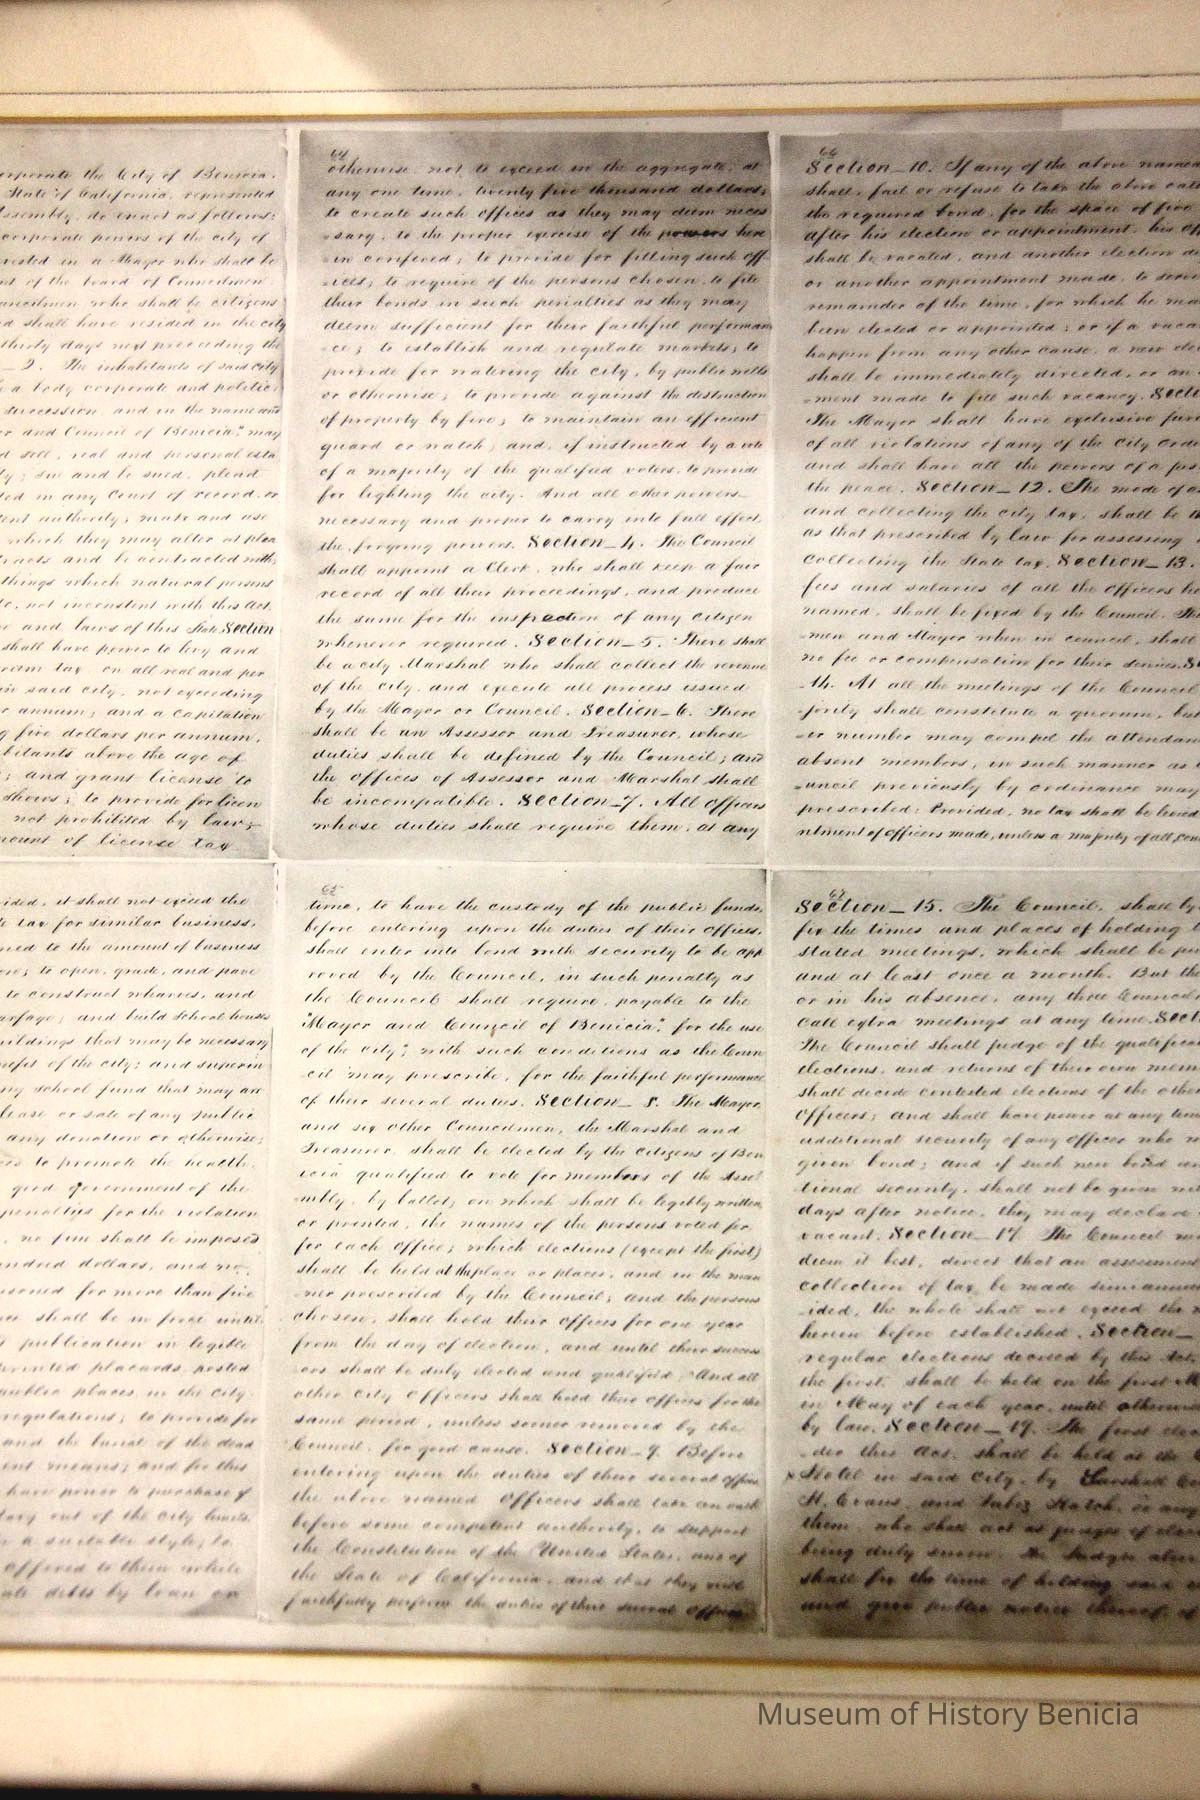 corporate the City of Benicia.
State of California, represented
Assembly, do enact as follows:
corporate powers of the city of
vested in a Mayor who shall be
of the board of Councilmen
Councilmen who shall be citizens
shall have resided in the city
thirty days next preceeding the
2. The inhabitants of said city
a body corporate and politic,
succession, and in the name and
and Council of Benicia," may
sell, real and personal esta
; sue and be sued, plead
in any Court of record, or
authority; make and use
which they may alter at plea
and be contracted with,
things which natural persons
not inconsistent with this Act,
and laws of this State. Section
shall have power to levy and
tax, on all real and per
said city, not exceeding
annum; and a capitation
five dollars per annum,
above the age of
; and grant license to
shows; to provide for licen
not prohibited by law;
of license tax
64
otherwise, not to exceed in the aggregate, at
any one time, twenty five thousand dollars;
to create such offices as they may deem neces
-sary, to the proper exercise of the powers here
-in confered; to provide for filling such off
-ices; to require of the persons chosen, to file
their bonds in such penalties as they may
deem sufficient for their faithful performan
-ce; to establish and regulate markets; to
provide for watering the city, by public wells
or otherwise; to provide against the destruction
of property by fire; to maintain an efficient
guard or watch; and, if instructed by a vote
of a majority of the qualified voters, to provide
for lighting the city. And all other powers
necessary and proper to carry into full effect,
the forgoing powers. Section_4. The Council
shall appoint a Clerk, who shall keep a fair
record of all their proceedings, and produce
the same for the inspection of any citizen
whenever required. Section_5. There shall
be a city Marshal who shall collect the revenue
of the city, and execute all process issued
by the Mayor or Council. Section_6. There
shall be an Assessor and Treasurer, whose
duties shall be defined by the Council; and
the offices of Assessor and Marshal shall
be incompatible. Section_7. All officers
whose duties shall require them, at any
66
Section_10. If any of the above named
shall, fail or refuse to take the above oath
the required bond, for the space of five
after his election or appointment, his off
shall be vacated, and another election
or another appointment made, to serve
remainder of the time, for which he ma
been elected or appointed; or if a vaca
happen from any other cause, a new elec
shall be immediately directed, or an
-ment made to fill such vacancy. Secti
The Mayor shall have exclusive
of all violations of any of the City Ordi
and shall have all the powers of a jus
the peace. Section_12. The mode of
and collecting the city tax, shall be th
as that prescribed by law for assessing
collecting the State tax. Section_13.
fees and salaries of all the officers he
named, shall be fixed by the Council. The
-men and Mayor when in council, shall
no fee or compensation for their services. Se
_14. At all the meetings of the Council
-jority shall constitute a quorum, but
-er number may compel the attendan
absent members, in such manner as
-uncil previously by ordinance may
prescribed: Provided, no tax shall be levied
ntment of officers made, unless a majority of all Coun
it shall not exceed the
tax for similar business,
to the amount of business
; to open, grade, and pave
to construct wharves, and
; and build School houses
buildings that may be necessary
of the city; and superin
school fund that may
lease or sale of any public
any donation or otherwise;
to promote the health,
good government of the
penalties for the violation
, no fine shall be imposed
hundred dollars, and no
for more than five
shall be in force until
publication in legible
printed placards, posted
public places, in the city.
regulations; to provide for
and the burial of the dead
means; and for this
have power to purchase
out of the city limits,
a suitable style; to
offered to them while
debts by loan or
65
time, to have the custody of the public funds,
before entering upon the duties of their offices,
shall enter into bond with security to be app
roved by the Council, in such penalty as
the Council shall require, payable to the
"Mayor and Council of Benicia", for the use
of the city; with such conditions as the Coun
cil may prescribe, for the faithful performance
of their several duties. Section_ 8. The Mayor,
and six other Councilmen, the Marshal and
Treasurer, shall be elected by the citizens of Ben
icia qualified to vote for members of the Asse
mbly, by ballot; on which shall be legibly written,
or printed, the names of the persons voted for,
for each office; which elections (except the first)
shall be held at the place or places, and in the man
ner prescribed by the Council; and the persons
chosen, shall hold their offices for one year
from the day of election, and until their success
ors shall be duly elected and qualified; And all
other City officers shall hold their offices for the
same period, unless sooner removed by the
Council, for good cause. Section_9. Before
entering upon the duties of their several offices
the above named Officers shall take an oath
before some competent authority, to support
the Constitution of the United States, and of
the State of California, and that they will
faithfully perform the duties of their several offices
67
Section_15. The Council, shall by
fix the times and places of holding t
stated meetings, which shall be pu
and at least once a month. But the
or in his absence, any three Council
call extra meetings at any time. Secti
The Council shall judge of the qualifica
elections, and returns of their own mem
shall decide contested elections of the other
Officers; and shall have power at any time
additional security of any officer who
given bond; and if such new bond
tional security, shall not be given wit
days after notice, they may declare
vacant. Section_17. The Council
deem it best, direct that an assessment
collection of tax, be made semiannua
-ided, the whole shall not exceed the
herein before established. Section_
regular elections decreed by this Act,
the first, shall be held on the first
in May of each year, until otherwise
by law. Section_19. The first elec
-der this Act, shall be held at the
Hotel in said City, by
H. Evans, and Jabez Hatch, or any
them, who shall act as judges of elec
being duly sworn. The Judges
shall fix the time of holding said
and give public notice thereof,
Museum of History Benicia